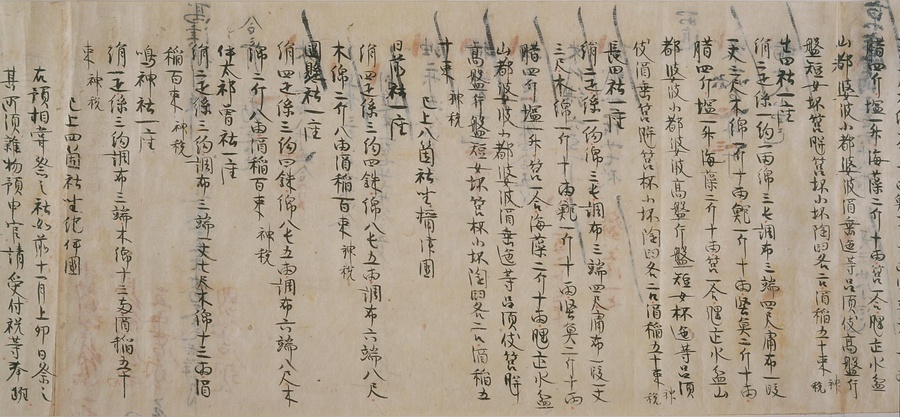 腊四斤塩一升海藻二斤十両筥一合腥一疋水盆
山都婆波小都婆波𤭖垂匜等呂須伎高盤片
盤短女坏筥瓶坏小坏陶臼各二口酒稲五十束 神税
生田社一座
絹二疋絲一絇綿三屯調布三端四尺庸布一段
一丈三尺木綿一斤十両鰒一斤十両堅魚二斤十両
腊四斤塩一升海藻二斤十両筥一合腥一疋水盆山
都婆波小都婆波高盤片盤短女杯匜等呂須
伎𤭖垂筥瓶筥杯小坏陶臼各二口酒稲五十束 神税
長田社一座
絹二疋絲一絇綿三屯調布三端四尺庸布一段一丈
三尺木綿一斤十両鰒一斤十両堅魚二斤十両
腊四斤塩一升筥一合海藻二斤十両腥一疋水盆
山都婆波小都婆波𤭖垂匜等呂須伎筥瓶
高盤片盤短女坏筥杯小坏陶臼各二口酒稲五
十束 神税
已上八箇社坐摂津国
日前社一座
絹四疋絲三絇四銖綿八屯五両調布六端八尺
木綿二斤八両酒稲百束 神税
国懸社一座
絹四疋絲三絇四銖綿八屯五両調布六端八尺木
綿二斤八両酒稲百束 神税
伊太祁曾社一座
絹二疋絲三絇調布三端一丈七尺木綿十三両酒
稲百束 神税
鳴神社一座
絹一疋絲三絇調布三端木綿十三両酒稲五十
束 神税
已上四箇社坐紀伊国
右預相甞祭之社如前十一月上卯日祭之
其所須雑物預申官請受付祝等奉班